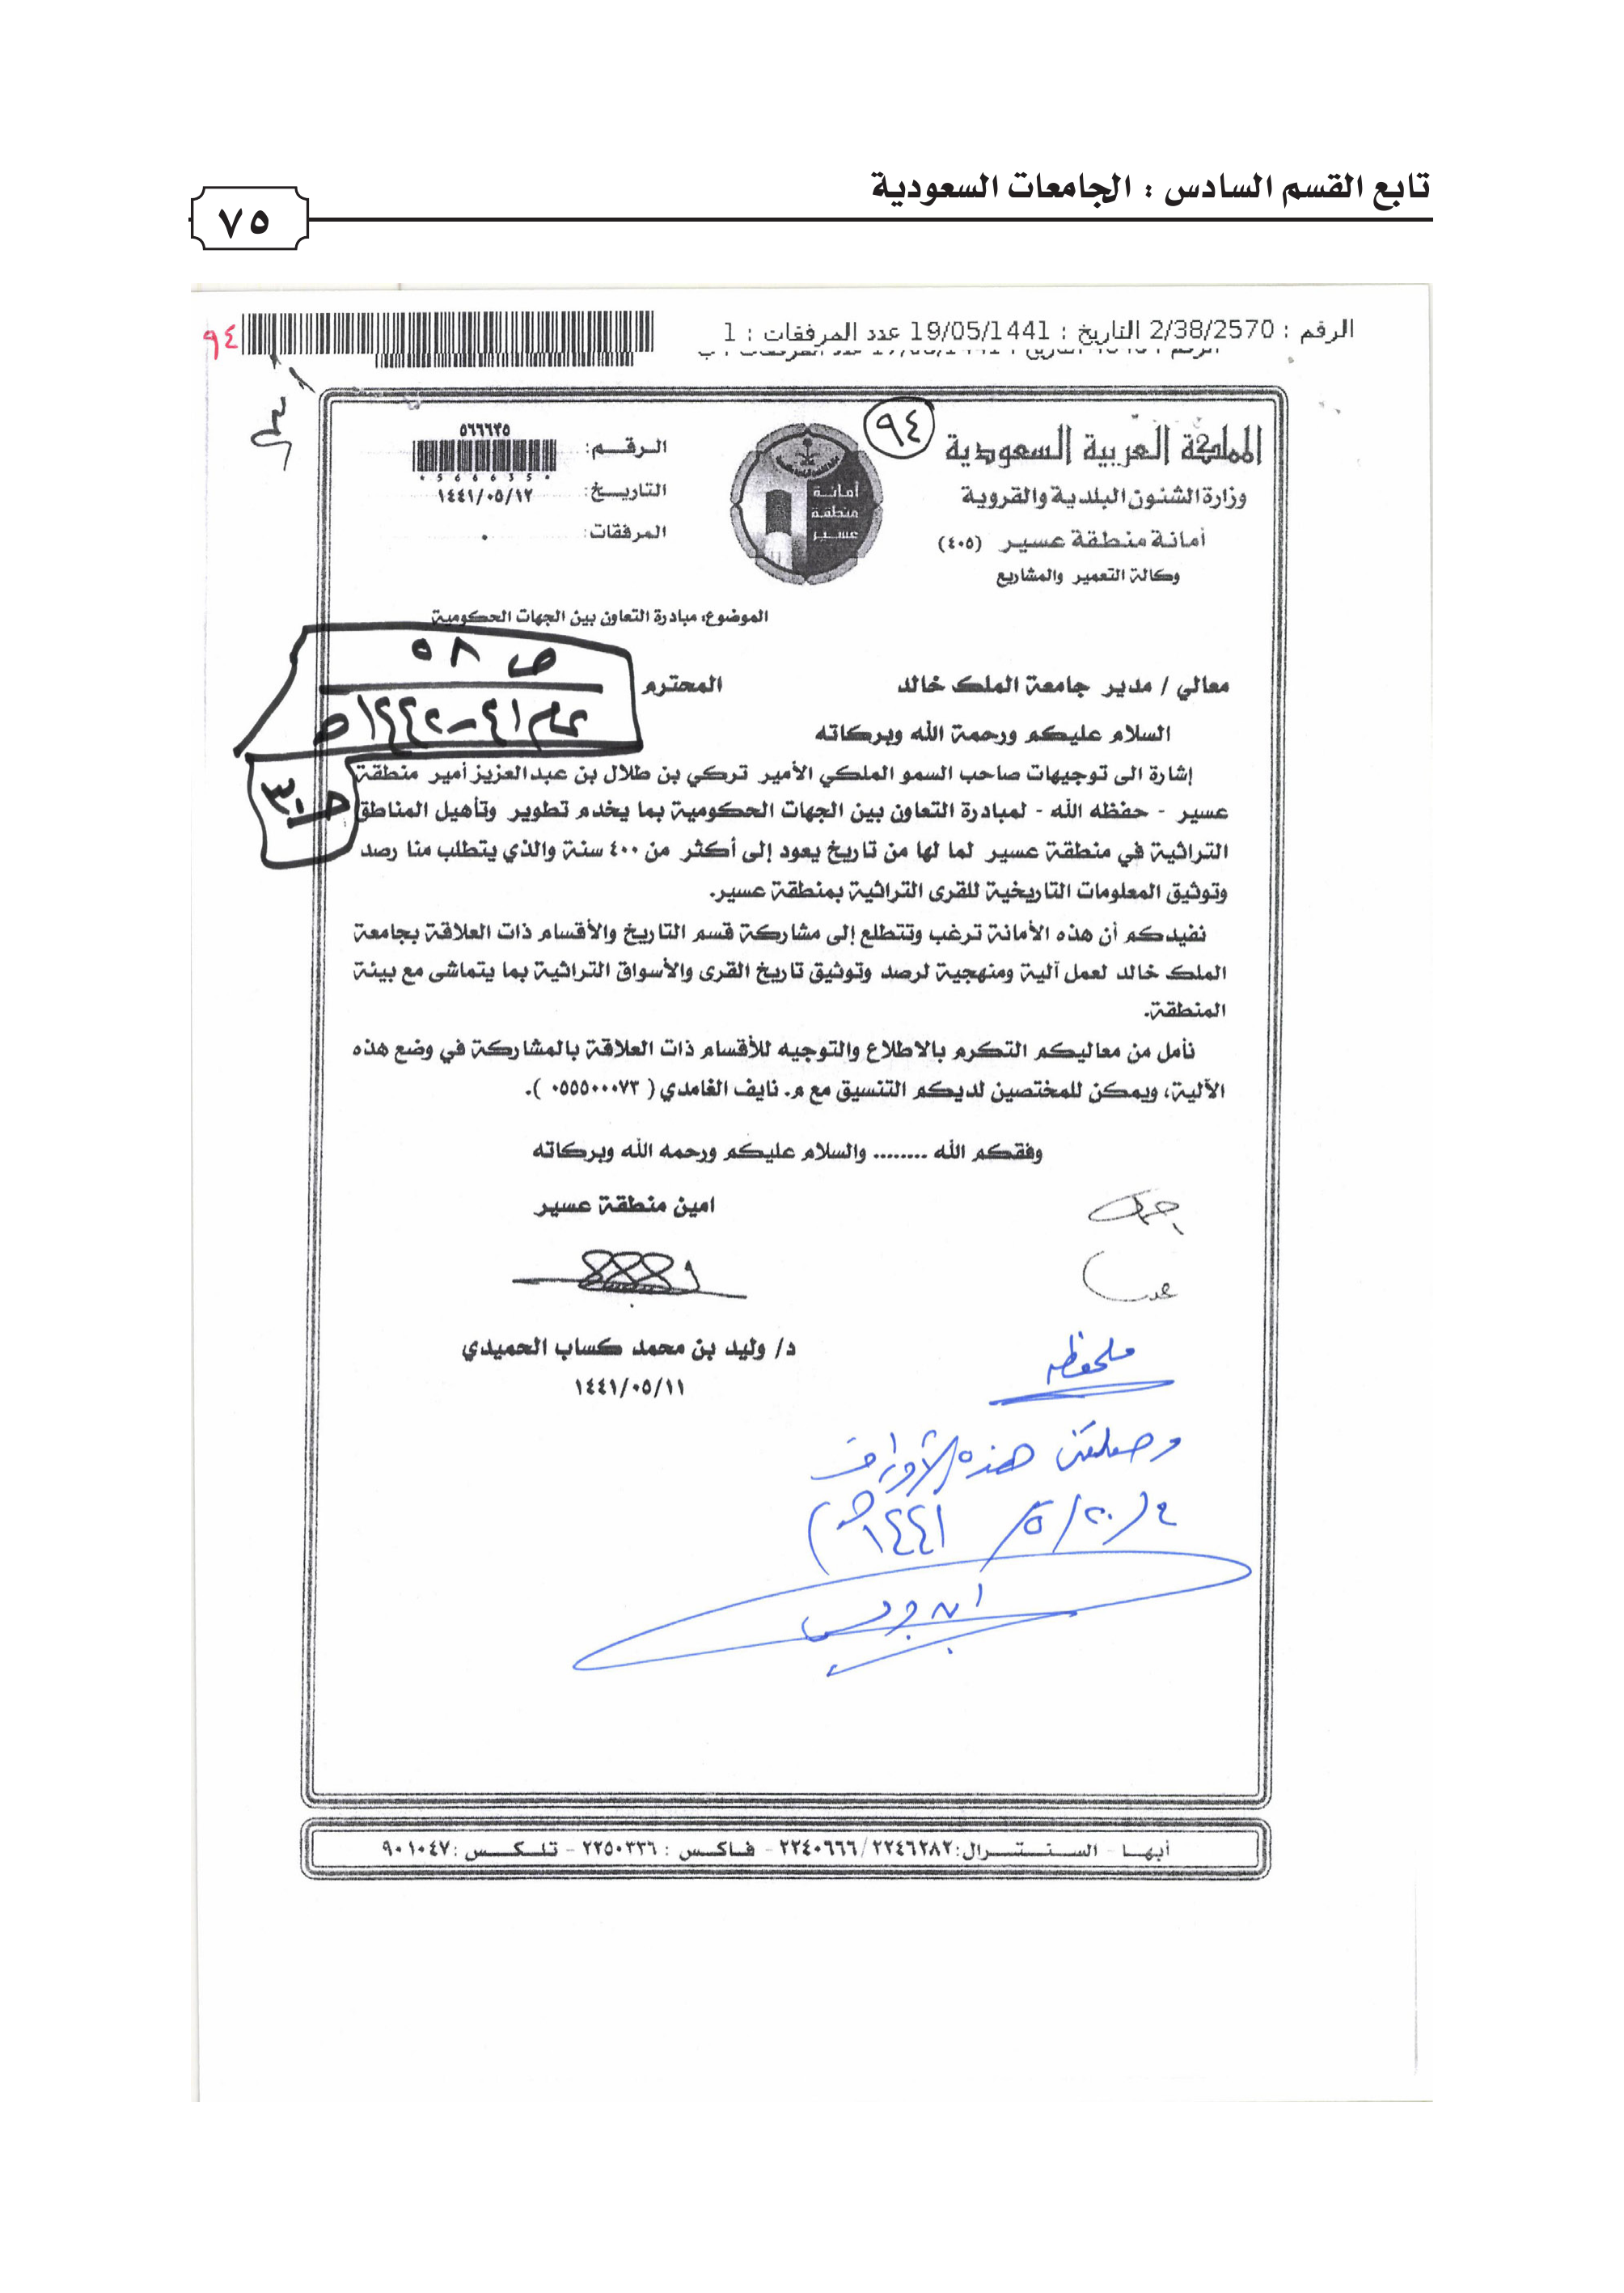 تابع القسم السادس : الجامعات السعودية
٧٥
الرقم : 2/38/2570 التاريخ : 19/05/1441 عدد المرفقات : 1
٩٤
٩٤
المملكة العربية السعودية
وزارة الشئون البلدية والقروية
أمانة منطقة عسير (٤٠٥)
وكالة التعمير والمشاريع
أمانة
منطقة
عسير
الرقم: ٥٦٦٦٣٥
05666350
التاريخ: ١٤٤١/٠٥/١٢
المرفقات: ٠
الموضوع: مبادرة التعاون بين الجهات الحكومية
ص ٥٨
عام ٤١-١٤٤٢هـ
معالي / مدير جامعة الملك خالد المحترم
السلام عليكم ورحمة الله وبركاته
إشارة الى توجيهات صاحب السمو الملكي الأمير تركي بن طلال بن عبدالعزيز أمير منطقة
عسير - حفظه الله - لمبادرة التعاون بين الجهات الحكومية بما يخدم تطوير وتأهيل المناطق
التراثية في منطقة عسير لما لها من تاريخ يعود إلى أكثر من ٤٠٠ سنة والذي يتطلب منا رصد
وتوثيق المعلومات التاريخية للقرى التراثية بمنطقة عسير.
نفيدكم أن هذه الأمانة ترغب وتتطلع إلى مشاركة قسم التاريخ والأقسام ذات العلاقة بجامعة
الملك خالد لعمل آلية ومنهجية لرصد وتوثيق تاريخ القرى والأسواق التراثية بما يتماشى مع بيئة
المنطقة.
نأمل من معاليكم التكرم بالاطلاع والتوجيه للأقسام ذات العلاقة بالمشاركة في وضع هذه
الآلية، ويمكن للمختصين لديكم التنسيق مع م. نايف الغامدي ( ٠٥٥٥٠٠٠٧٣ ).
وفقكم الله ........ والسلام عليكم ورحمه الله وبركاته
امين منطقة عسير
د/ وليد بن محمد كساب الحميدي
١٤٤١/٠٥/١١
ملحوظه
وصلتني هذه الأوراق
في ٢٠/ ٥/ ١٤٤١هـ)
ابن جريس
أبها - السنترال: ٢٢٤٠٦٦٦/٢٢٤٦٢٨٢ - فاكس : ٢٢٥٠٣٣٦ - تلكس : ٩٠١٠٤٧